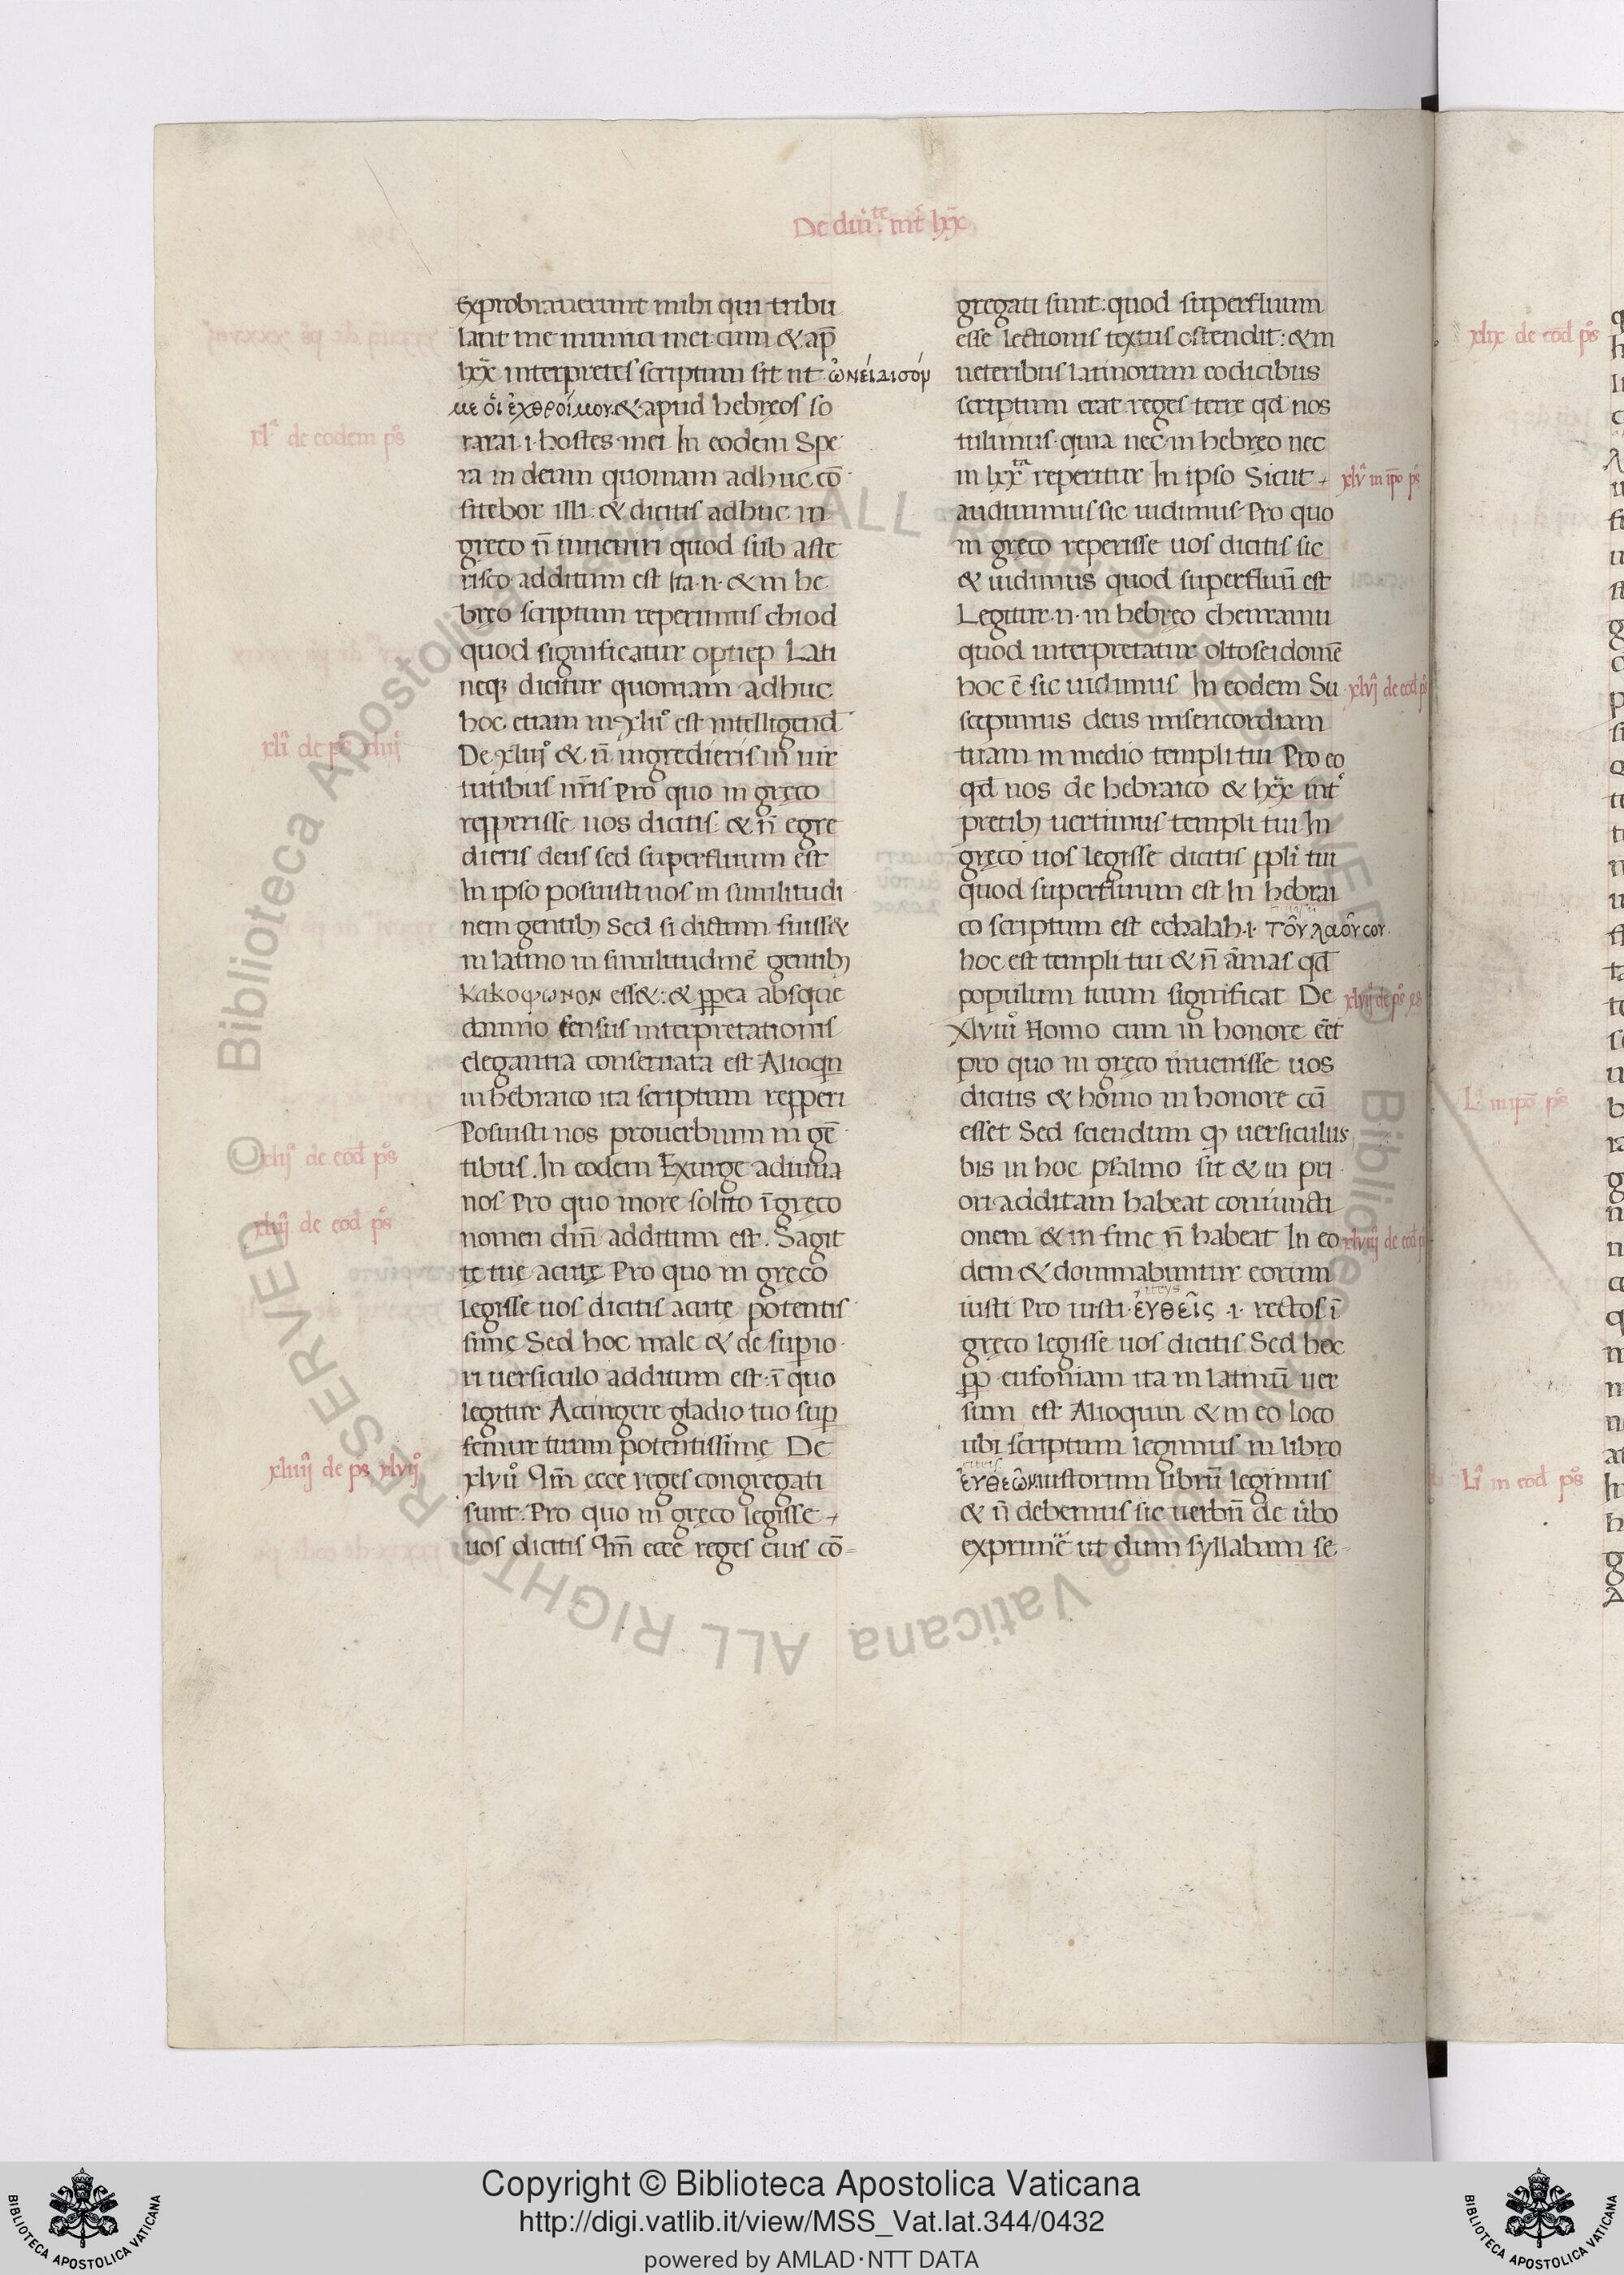 De diu͛.te int͛ lxx
Exprobrauerunt mihi qui tribu
lant me inimici mei: cum & ap̄
lxx interpretes scriptum sit ut ὠνείδισόν
με ὁι ἐχθροί μου. & apud hebręos so
rarai .i. hostes mei In eodem Spe
xla de eodem ps̄
ra in deum quoniam adhuc cō
fitebor illi: & dicitis adhuc in
gręco n̄ inueniri quod sub aste
risco additum est Ita .n. & in he
bręo scriptum reperimus chiod
quod significatur optiep Lati
neq; dicitur quoniam adhuc
hoc etiam in xlii° est intelligend
De xliij° & n̄ ingredieris in uir
xli de ps̄ xliij
tutibus nr̄is Pro quo in gręco
repperisse uos dicitis & n̄ egre
dieris deus sed superfluum est
In ipso posuisti nos in similitudi
nem gentib; Sed si dictum fuiss&
in latino in similitudinē gentib;
κακοφωνον ess&: & pp̱ea absque
damno sensus interpretationis
elegantia conseruata est Alioqn
in hebraico ita scriptum repperi
Posuisti nos prouerbium in gē
tibus. In eodem Exurge adiuua
xlij de eod ps̄
nos Pro quo more solito ī gręco
nomen dn̄i additum est. Sagit
xliij de eod ps̄
tę tuę acutę Pro quo in gręco
legisse uos dicitis acutę potentis
sime Sed hoc male & de supio
ri uersiculo additum est: ī quo
legitur Accingere gladio tuo sup
femur tuum potentissime De
xlvii° Qm̄ ecce reges congregati
xliiij de ps̄ xlvij°
sunt. Pro quo in gręco legisse
uos dicitis Qm̄ ecce reges eius cō
gregati sunt: quod superfluum
esse lectionis textus ostendit: & in
ueteribus latinorum codicibus
scriptum erat reges terrę qd nos
tulimus quia nec in hebręo nec
in lxxta reperitur In ipso Sicut
xlv in ip̄o ps̄
audiuimus sic uidimus Pro quo
in gręco reperisse uos dicitis sic
& uidimus quod superfluū est
Legitur .n. in hebręo chenramu
quod interpretatur oltoseidomē
hoc ē sic uidimus In eodem Su
xlvj de eod ps̄
scepimus deus misericordiam
tuam in medio templi tui Pro eo
qd nos de hebraico & lxx int͛
pretib; uertimus templi tui In
gręco uos legisse dicitis ppli tui
quod superfluum est In hebrai
co scriptum est echalah .i. τοῦ λαοῦ σου
hoc est templi tui & n̄ āmas qd
populum tuum significat De
xlvii° Homo cum in honore eēt
pro quo in gręco inuenisse uos
dicitis & homo in honore cū
esset Sed sciendum ꝙ uersiculus
bis in hoc psalmo sit & in pri
ori additam habeat coniuncti
onem & in fine n̄ habeat In eo
xlviij de eod ps̄
dem & dominabuntur eorum
iusti Pro iusti ἐυθεῖς .i. rectos ī
gręco legisse uos dicitis Sed hoc
pp̱ eufoniam ita in latinū uer
sum est Alioquin & in eo loco
ubi scriptum legimus in libro
ἐυθεῶν iustorum librū legimus
& n̄ debemus sic uerbū de ūbo
exprimē ut dum syllabam se
xlix de eod ps̄
L in ip̄o ps̄
Li in eod ps̄
Copyright © Biblioteca Apostolica Vaticana
http://digi.vatlib.it/view/MSS_Vat.lat.344/0432
powered by AMLAD·NTT DATA
BIBLIOTECA APOSTOLICA VATICANA
BIBLIOTECA APOSTOLICA VATICANA